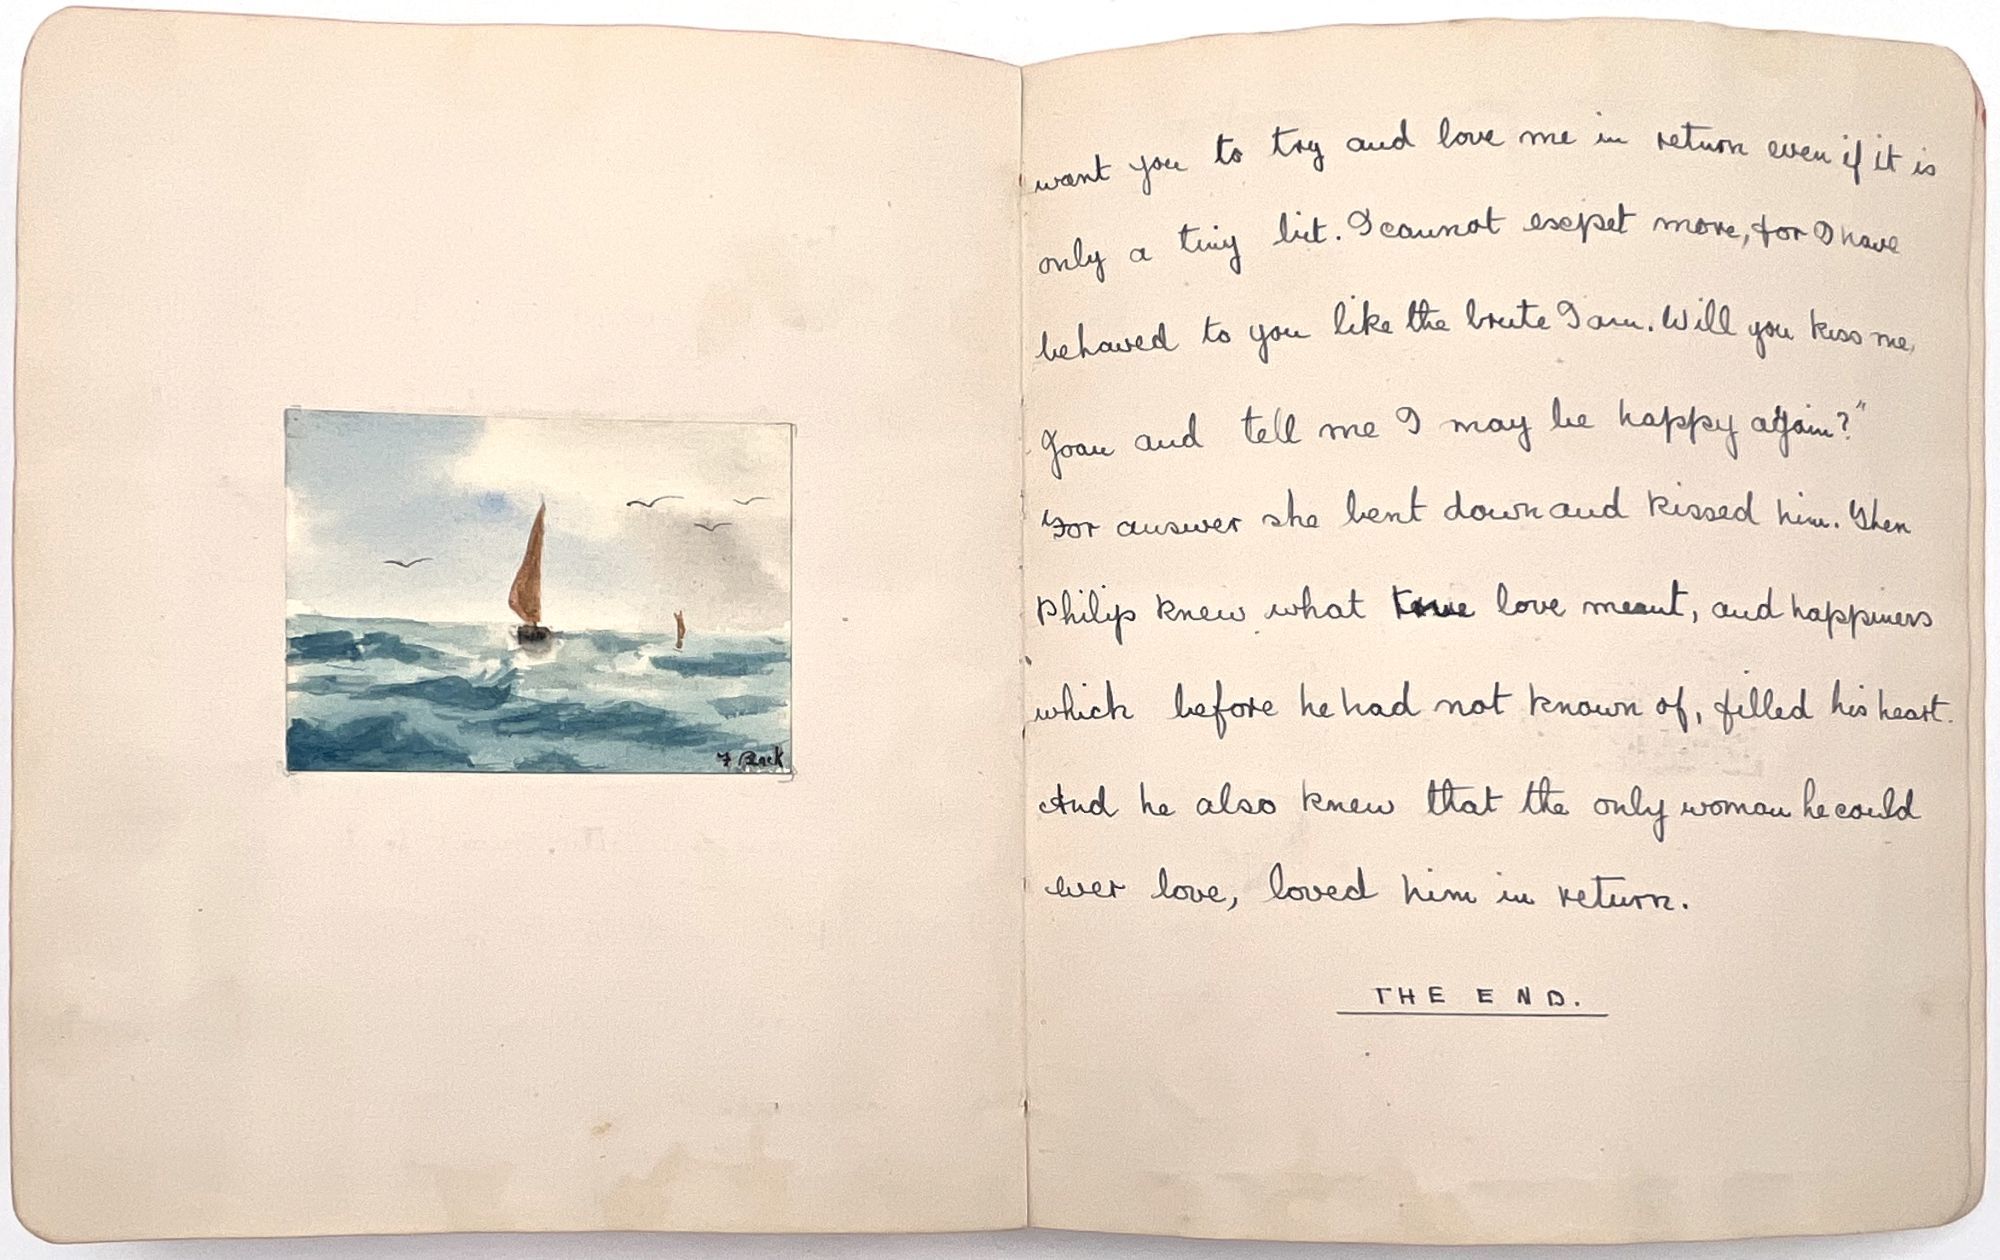 F Back
want you to try and love me in return even if it is
only a tiny bit. I cannot excpet more, for I have
behaved to you like the brute I am. Will you kiss me,
Joan and tell me I may be happy again?"
For answer she bent down and kissed him. Then
Philip knew what love meant, and happiness
which before he had not known of, filled his heart.
And he also knew that the only woman he could
ever love, loved him in return.
THE END.